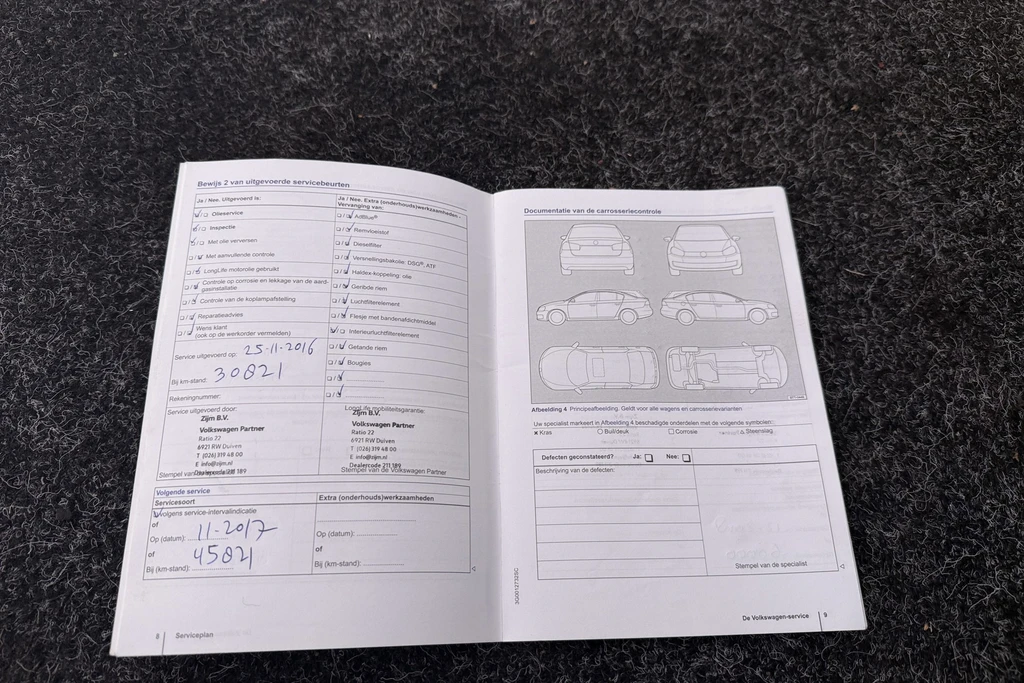 Bewijs 2 van uitgevoerde servicebeurten
Ja / Nee. Uitgevoerd is:
Olieservice
Inspectie
Met olie verversen
Met aanvullende controle
LongLife motorolie gebruikt
Controle op corrosie en lekkage van de aard-
gasinstallatie
Controle van de koplampafstelling
Reparatieadvies
Wens klant
(ook op de werkorder vermelden)
Service uitgevoerd op: 25-11-2016
Bij km-stand: 30821
Rekeningnummer:
Service uitgevoerd door:
Zijm B.V.
Volkswagen Partner
Ratio 22
6921 RW Duiven
T (026) 319 48 00
E info@zijm.nl
Dealercode 211 189
Ja / Nee. Extra (onderhouds)werkzaamheden -
Vervanging van:
AdBlue®
Remvloeistof
Dieselfilter
Versnellingsbakolie: DSG®, ATF
Haldex-koppeling: olie
Geribde riem
Luchtfilterelement
Flesje met bandenafdichtmiddel
Interieurluchtfilterelement
Getande riem
Bougies
LongLife mobiliteitsgarantie:
Zijm B.V.
Volkswagen Partner
Ratio 22
6921 RW Duiven
T (026) 319 48 00
E info@zijm.nl
Dealercode 211 189
Stempel van de Volkswagen Partner
Volgende service
Servicesoort
volgens service-intervalindicatie
of
Op (datum): 11-2017
of 45821
Bij (km-stand):
Extra (onderhouds)werkzaamheden
Op (datum):
of
Bij (km-stand):
8 Serviceplan
Documentatie van de carrosseriecontrole
Afbeelding 4 Principeafbeelding. Geldt voor alle wagens en carrosserievarianten
Uw specialist markeert in Afbeelding 4 beschadigde onderdelen met de volgende symbolen:
× Kras ○ Buil/deuk □ Corrosie △ Steenslag
Defecten geconstateerd? Ja: Nee:
Beschrijving van de defecten:
Stempel van de specialist
3G0012732SC
De Volkswagen-service 9